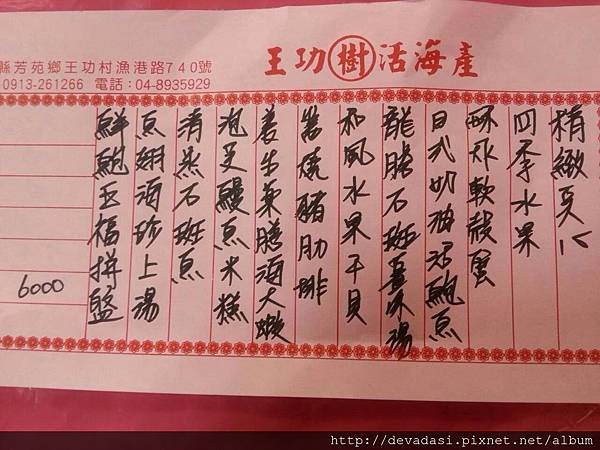 王功樹活海產
縣芳苑鄉王功村漁港路740號
0913-261266 電話:04-8935929
鮮鮑五福拼盤
魚翅海珍上湯
清蒸石斑魚
鰻魚米糕
養生藥膳海大蝦
燒豬肋排
和風水果干貝
龍膽石斑薑湯
日式奶油焗鮑魚
酥炸軟殼蟹
四季水果
精緻点心
6000
http://devadasi.pixnet.net/album